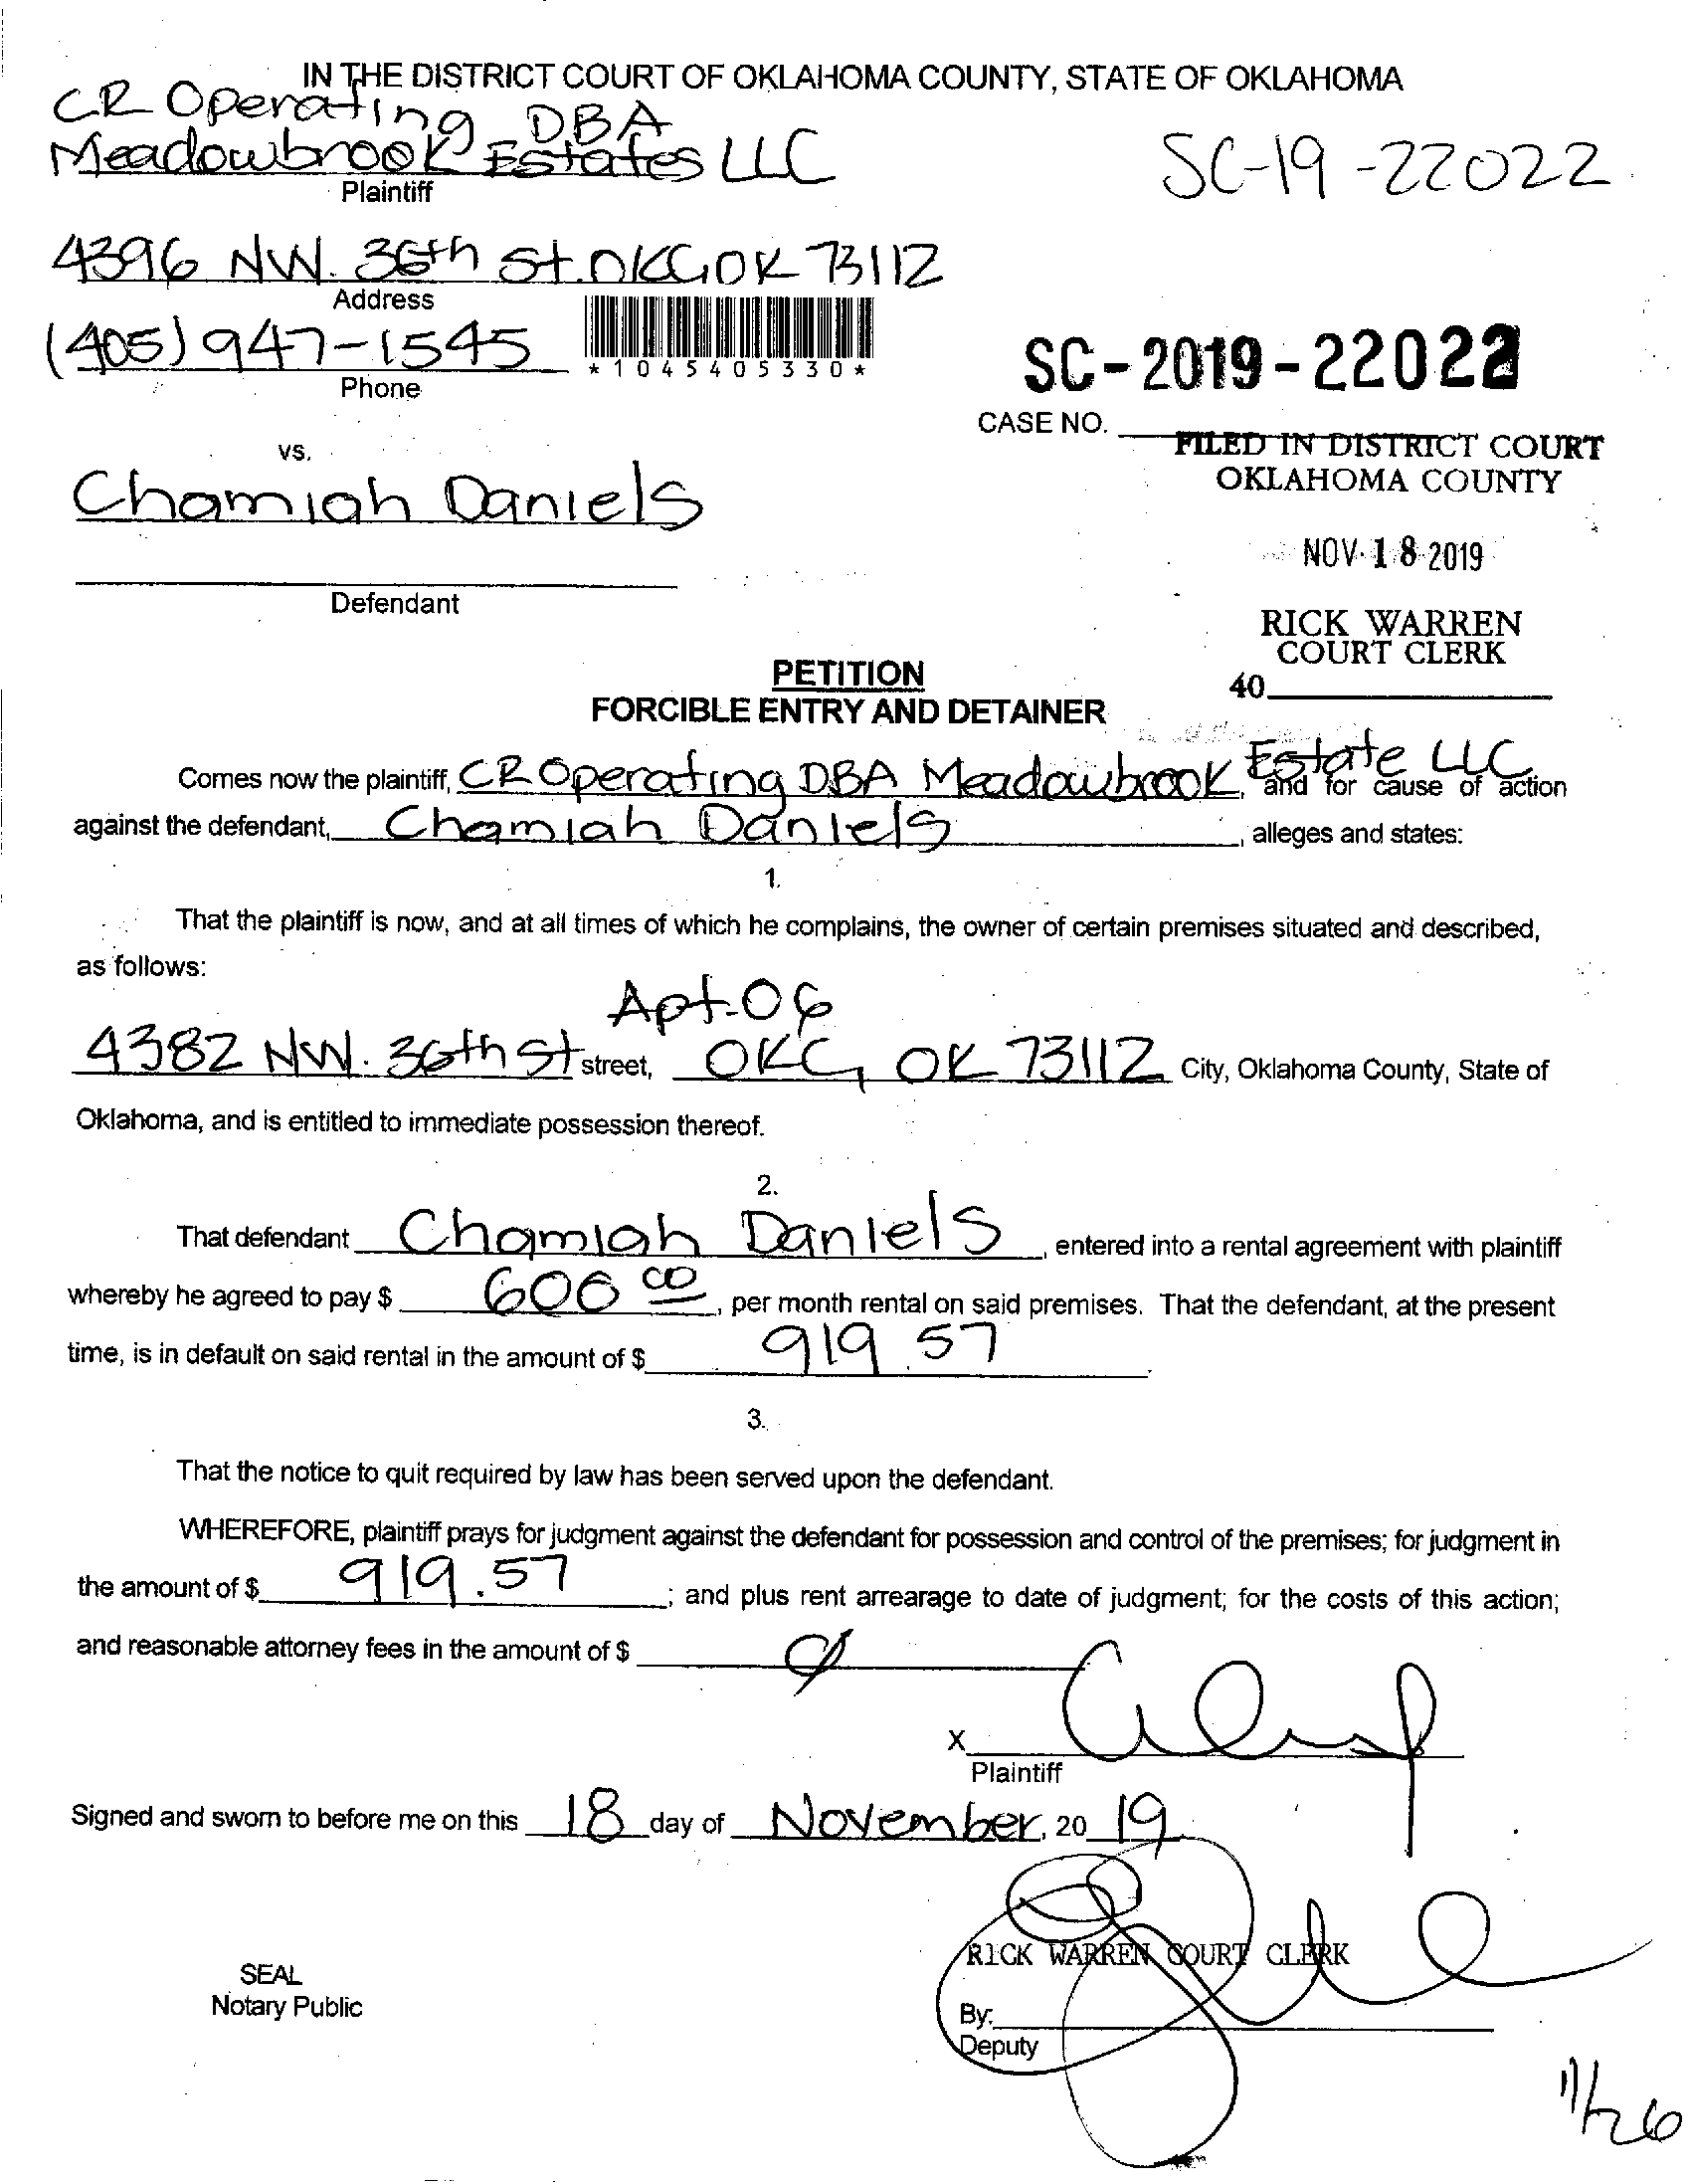 IN THE DISTRICT COURT OF OKLAHOMA COUNTY, STATE OF OKLAHOMA
CR Operating DBA
Meadowbrook Estates LLC
Plaintiff
SC-19-22022
4396 NW. 36th St. OKC, OK 73112
Address
(405) 947-1545
Phone
*1045405330*
SC-2019-22022
CASE NO.
FILED IN DISTRICT COURT
OKLAHOMA COUNTY
vs.
Chamiah Daniels
NOV 18 2019
Defendant
RICK WARREN
COURT CLERK
40
PETITION
FORCIBLE ENTRY AND DETAINER
Comes now the plaintiff, CR Operating DBA Meadowbrook Estate LLC, and for cause of action
against the defendant, Chamiah Daniels, alleges and states:
1.
That the plaintiff is now, and at all times of which he complains, the owner of certain premises situated and described,
as follows:
Apt. 06
4382 NW. 36th St street, OKC, OK 73112 City, Oklahoma County, State of
Oklahoma, and is entitled to immediate possession thereof.
2.
That defendant Chamiah Daniels, entered into a rental agreement with plaintiff
whereby he agreed to pay $ 606 00, per month rental on said premises. That the defendant, at the present
time, is in default on said rental in the amount of $ 919.57
3.
That the notice to quit required by law has been served upon the defendant.
WHEREFORE, plaintiff prays for judgment against the defendant for possession and control of the premises; for judgment in
the amount of $ 919.57; and plus rent arrearage to date of judgment; for the costs of this action;
and reasonable attorney fees in the amount of $ Ø
X
Plaintiff
Signed and sworn to before me on this 18 day of November, 20 19
RICK WARREN COURT CLERK
SEAL
Notary Public
By:
Deputy
11/26